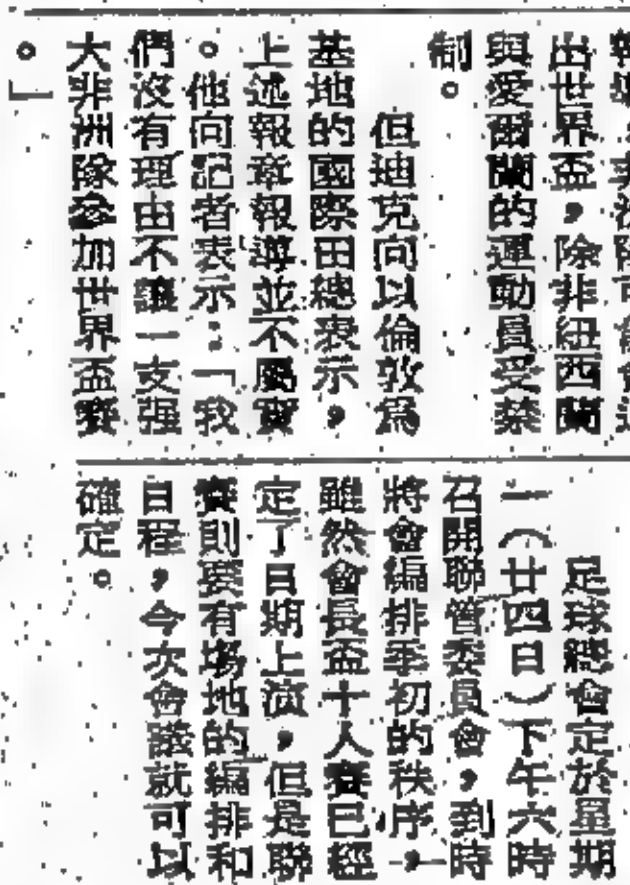 出世界盃,除非紐西蘭
與愛爾蘭的運動員受禁
制。
但迪克向以倫敦爲
基地的國際田總表示,
上述報章報導並不屬實
。他向記者表示:「我
們沒有理由不讓一支强
大非洲隊參加世界盃賽
。」
足球總會定於星期
一(廿四日)下午六時
召開聯管委員會,到時
將會編排季初的秩序,
雖然會長盃十人賽已經
定了日期上演,但是聯
賽則要有場地的編排和
日程,今次會議就可以
確定。